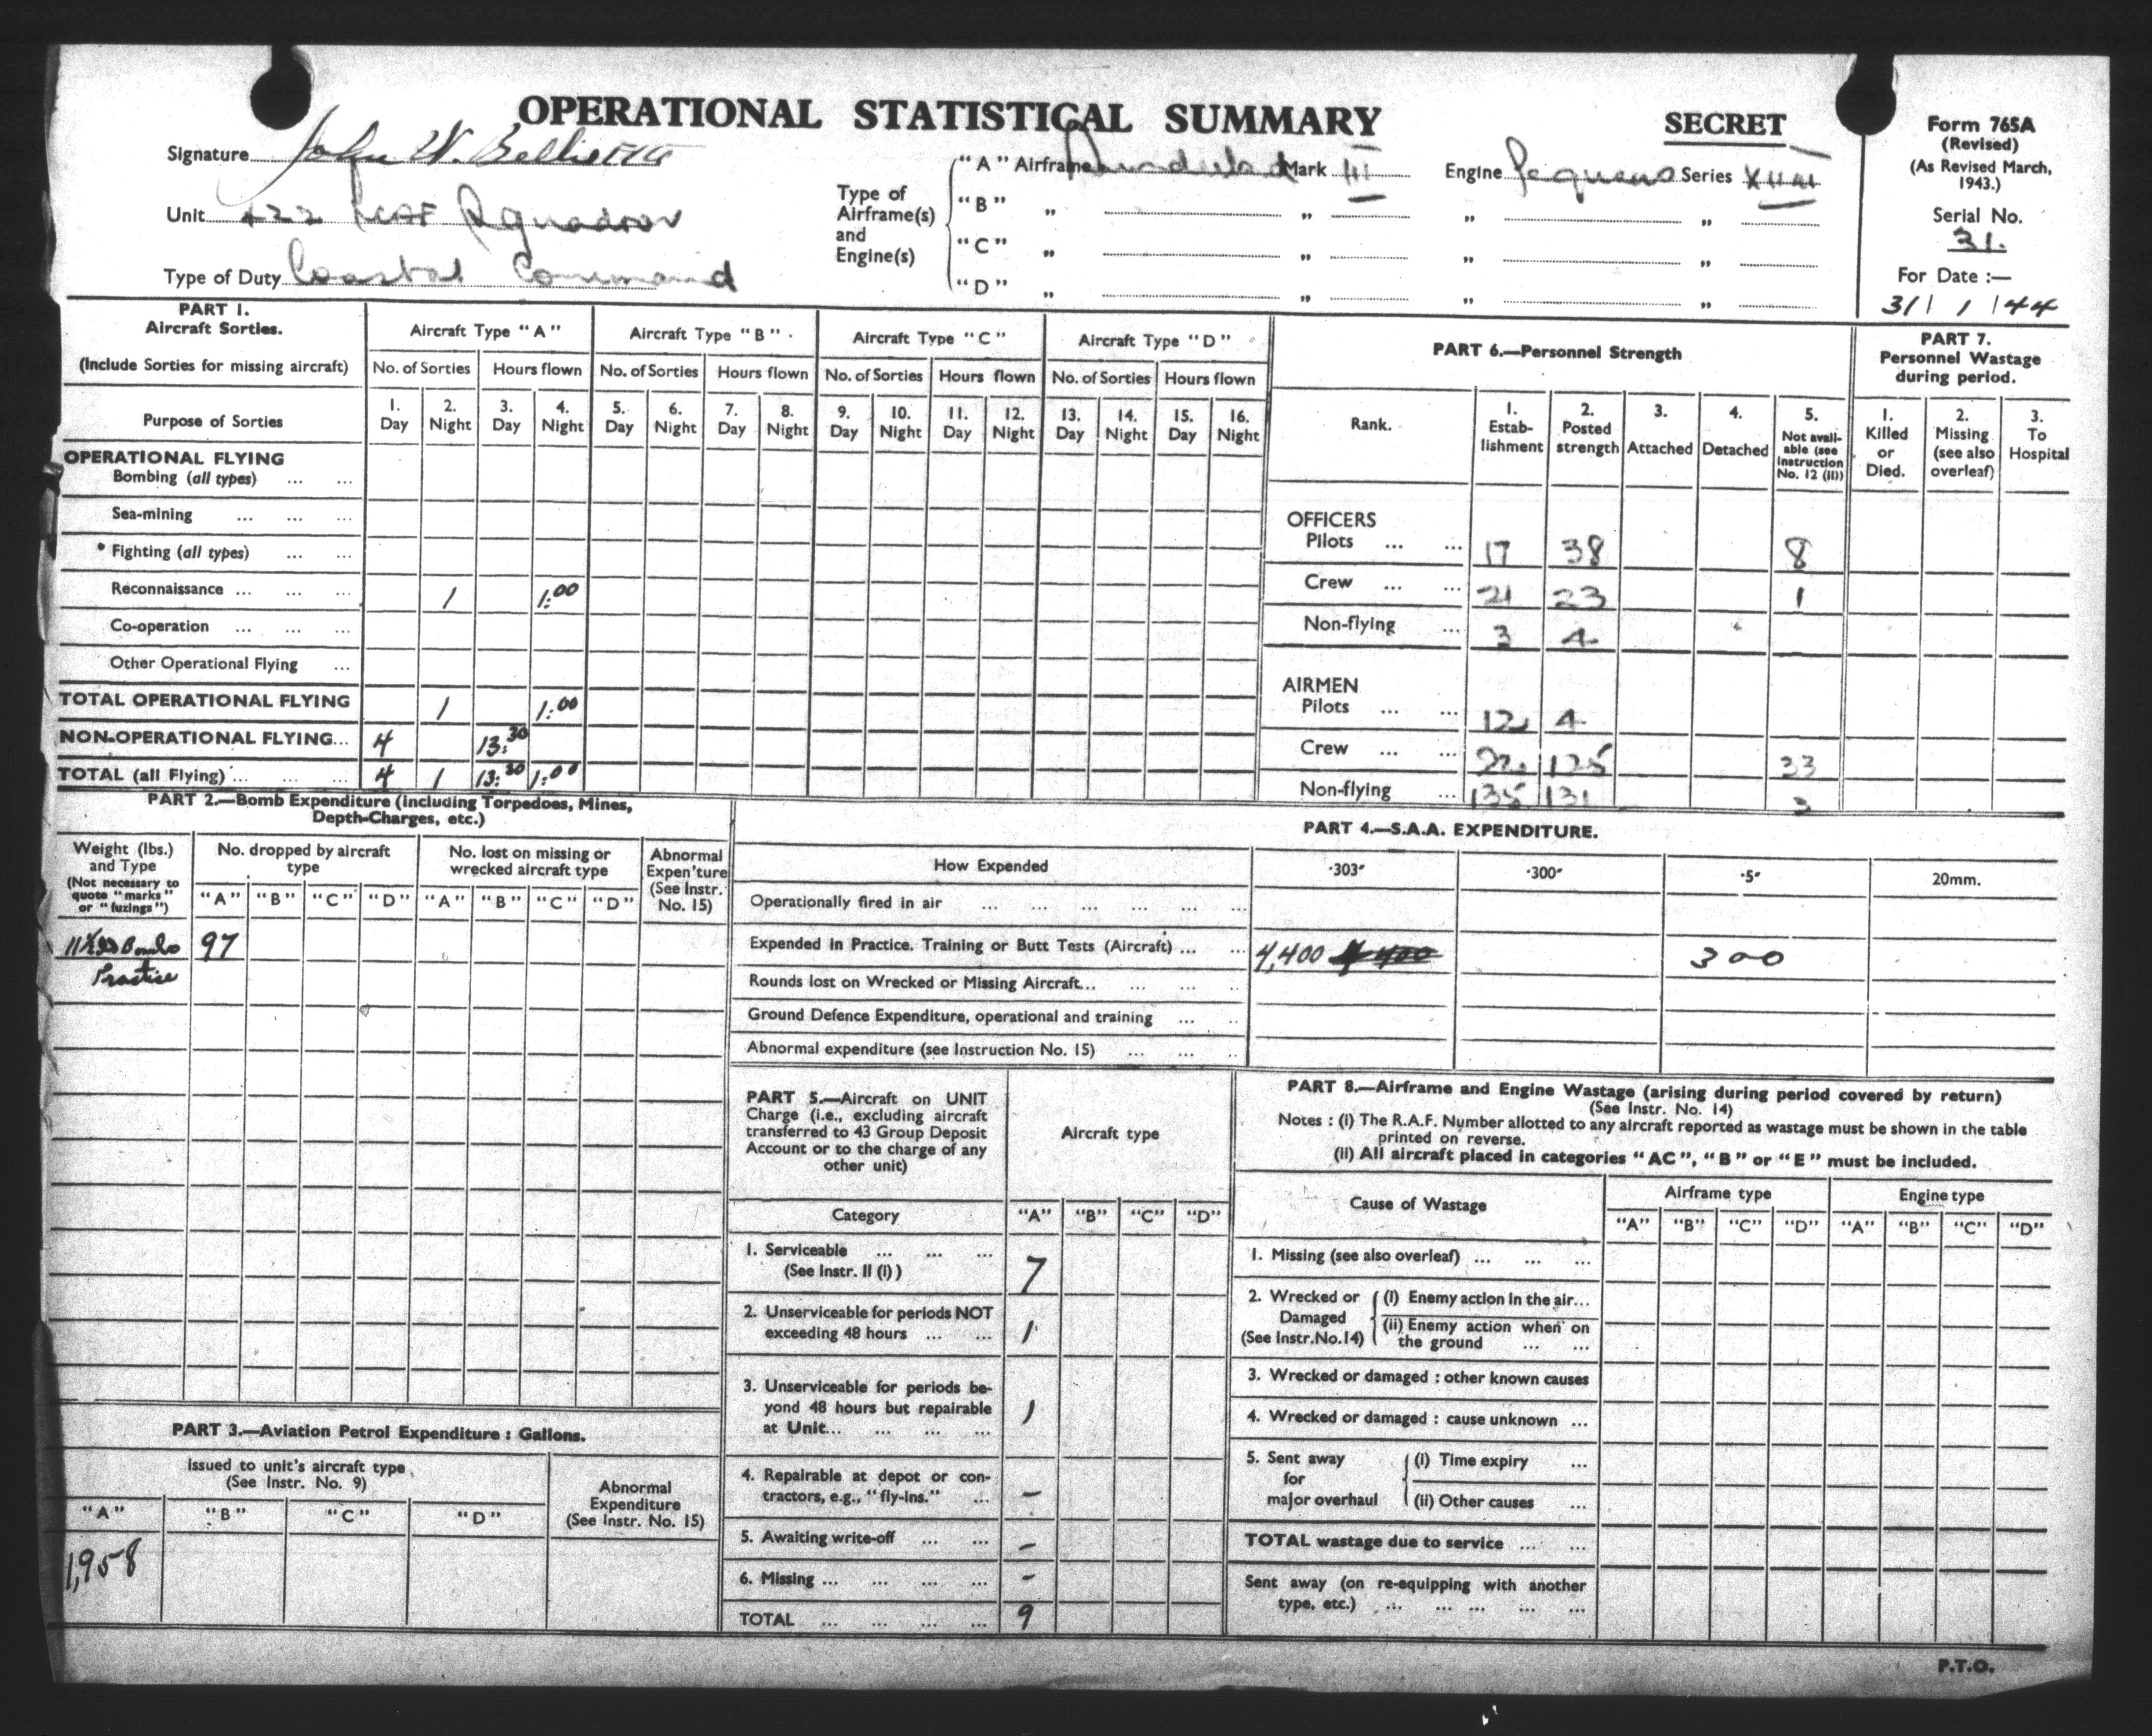 OPERATIONAL STATISTICAL SUMMARY
SECRET
Form 765A
(Revised)
(As Revised March, 1943.)
Serial No.
31.
For Date :—
31 / 1 / 44
Signature John W.
Unit 422 RCAF Squadron
Type of Duty Coastal Command
Type of Airframe(s) and Engine(s)
"A" Airframe Sunderland Mark III Engine Pegasus Series XVIII
"B" " " " "
"C" " " " "
"D" " " " "
PART 1.
Aircraft Sorties.
(Include Sorties for missing aircraft)
Aircraft Type "A" Aircraft Type "B" Aircraft Type "C" Aircraft Type "D"
No. of Sorties Hours flown No. of Sorties Hours flown No. of Sorties Hours flown No. of Sorties Hours flown
Purpose of Sorties
1. Day 2. Night 3. Day 4. Night 5. Day 6. Night 7. Day 8. Night 9. Day 10. Night 11. Day 12. Night 13. Day 14. Night 15. Day 16. Night
OPERATIONAL FLYING
Bombing (all types) ... ...
Sea-mining ... ... ...
* Fighting (all types) ... ...
Reconnaissance ... ... ... 1 1:00
Co-operation ... ... ...
Other Operational Flying ...
TOTAL OPERATIONAL FLYING 1 1:00
NON-OPERATIONAL FLYING... 4 13:30
TOTAL (all Flying) ... ... ... 4 1 13:30 1:00
PART 6.—Personnel Strength
Rank.
1. Estab-lishment
2. Posted strength
3. Attached
4. Detached
5. Not avail-able (see Instruction No. 12 (II))
OFFICERS
Pilots ... ... 17 38 8
Crew ... ... 21 23 1
Non-flying ... 3 4
AIRMEN
Pilots ... ... 12 4
Crew ... ... 22 125 33
Non-flying ... 135 131 3
PART 7.
Personnel Wastage during period.
1. Killed or Died.
2. Missing (see also overleaf)
3. To Hospital
PART 2.—Bomb Expenditure (including Torpedoes, Mines,
Depth-Charges, etc.)
Weight (lbs.) and Type
(Not necessary to quote "marks" or "fuzings")
No. dropped by aircraft type
No. lost on missing or wrecked aircraft type
Abnormal Expen'ture (See Instr. No. 15)
"A" "B" "C" "D" "A" "B" "C" "D"
11½ lbs Bombs 97
Practice
PART 3.—Aviation Petrol Expenditure : Gallons.
Issued to unit's aircraft type
(See Instr. No. 9)
Abnormal Expenditure
(See Instr. No. 15)
"A" "B" "C" "D"
1,958
PART 4.—S.A.A. EXPENDITURE.
How Expended ·303" ·300" ·5" 20mm.
Operationally fired in air ... ... ... ... ... ...
Expended in Practice. Training or Butt Tests (Aircraft) ... ... 4,400 300
Rounds lost on Wrecked or Missing Aircraft... ... ... ..
Ground Defence Expenditure, operational and training ... ..
Abnormal expenditure (see Instruction No. 15) ... ... ..
PART 5.—Aircraft on UNIT
Charge (i.e., excluding aircraft
transferred to 43 Group Deposit
Account or to the charge of any
other unit)
Aircraft type
Category "A" "B" "C" "D"
1. Serviceable ... ... ...
(See Instr. II (i) ) 7
2. Unserviceable for periods NOT
exceeding 48 hours ... ... 1
3. Unserviceable for periods be-
yond 48 hours but repairable
at Unit... ... ... ... 1
4. Repairable at depot or con-
tractors, e.g., "fly-ins." ... –
5. Awaiting write-off ... ... –
6. Missing ... ... ... ... –
TOTAL ... ... ... ... 9
PART 8.—Airframe and Engine Wastage (arising during period covered by return)
(See Instr. No. 14)
Notes : (i) The R.A.F. Number allotted to any aircraft reported as wastage must be shown in the table
printed on reverse.
(ii) All aircraft placed in categories "AC", "B" or "E" must be included.
Cause of Wastage
Airframe type Engine type
"A" "B" "C" "D" "A" "B" "C" "D"
1. Missing (see also overleaf) ... ... ...
2. Wrecked or Damaged (See Instr.No.14)
(i) Enemy action in the air...
(ii) Enemy action when on
the ground ... ...
3. Wrecked or damaged : other known causes
4. Wrecked or damaged : cause unknown ...
5. Sent away for major overhaul
(i) Time expiry ...
(ii) Other causes ...
TOTAL wastage due to service ... ...
Sent away (on re-equipping with another
type, etc.) ... ... ... ... ...
P.T.O.